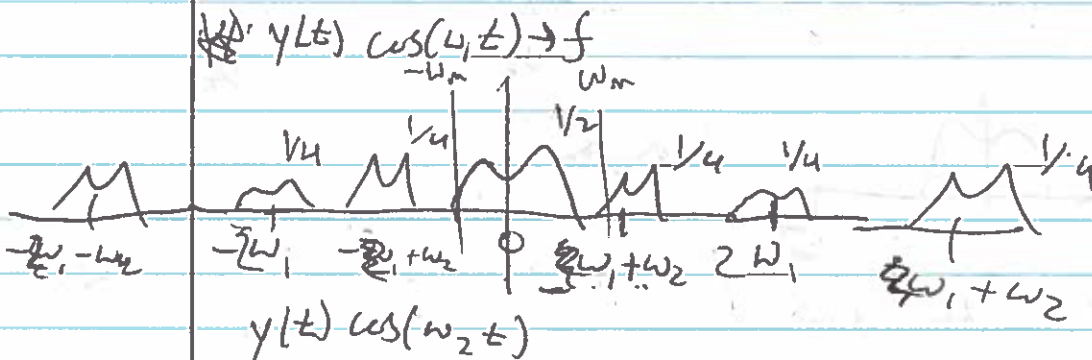 y(t) cos(ω₁t) → f
-ωₘ ωₘ
1/4 1/4 1/2 1/4 1/4 1/4
-ω₁-ω₂ -2ω₁ -ω₁+ω₂ 0 ω₁+ω₂ 2ω₁ ω₁+ω₂
y(t) cos(ω₂t)